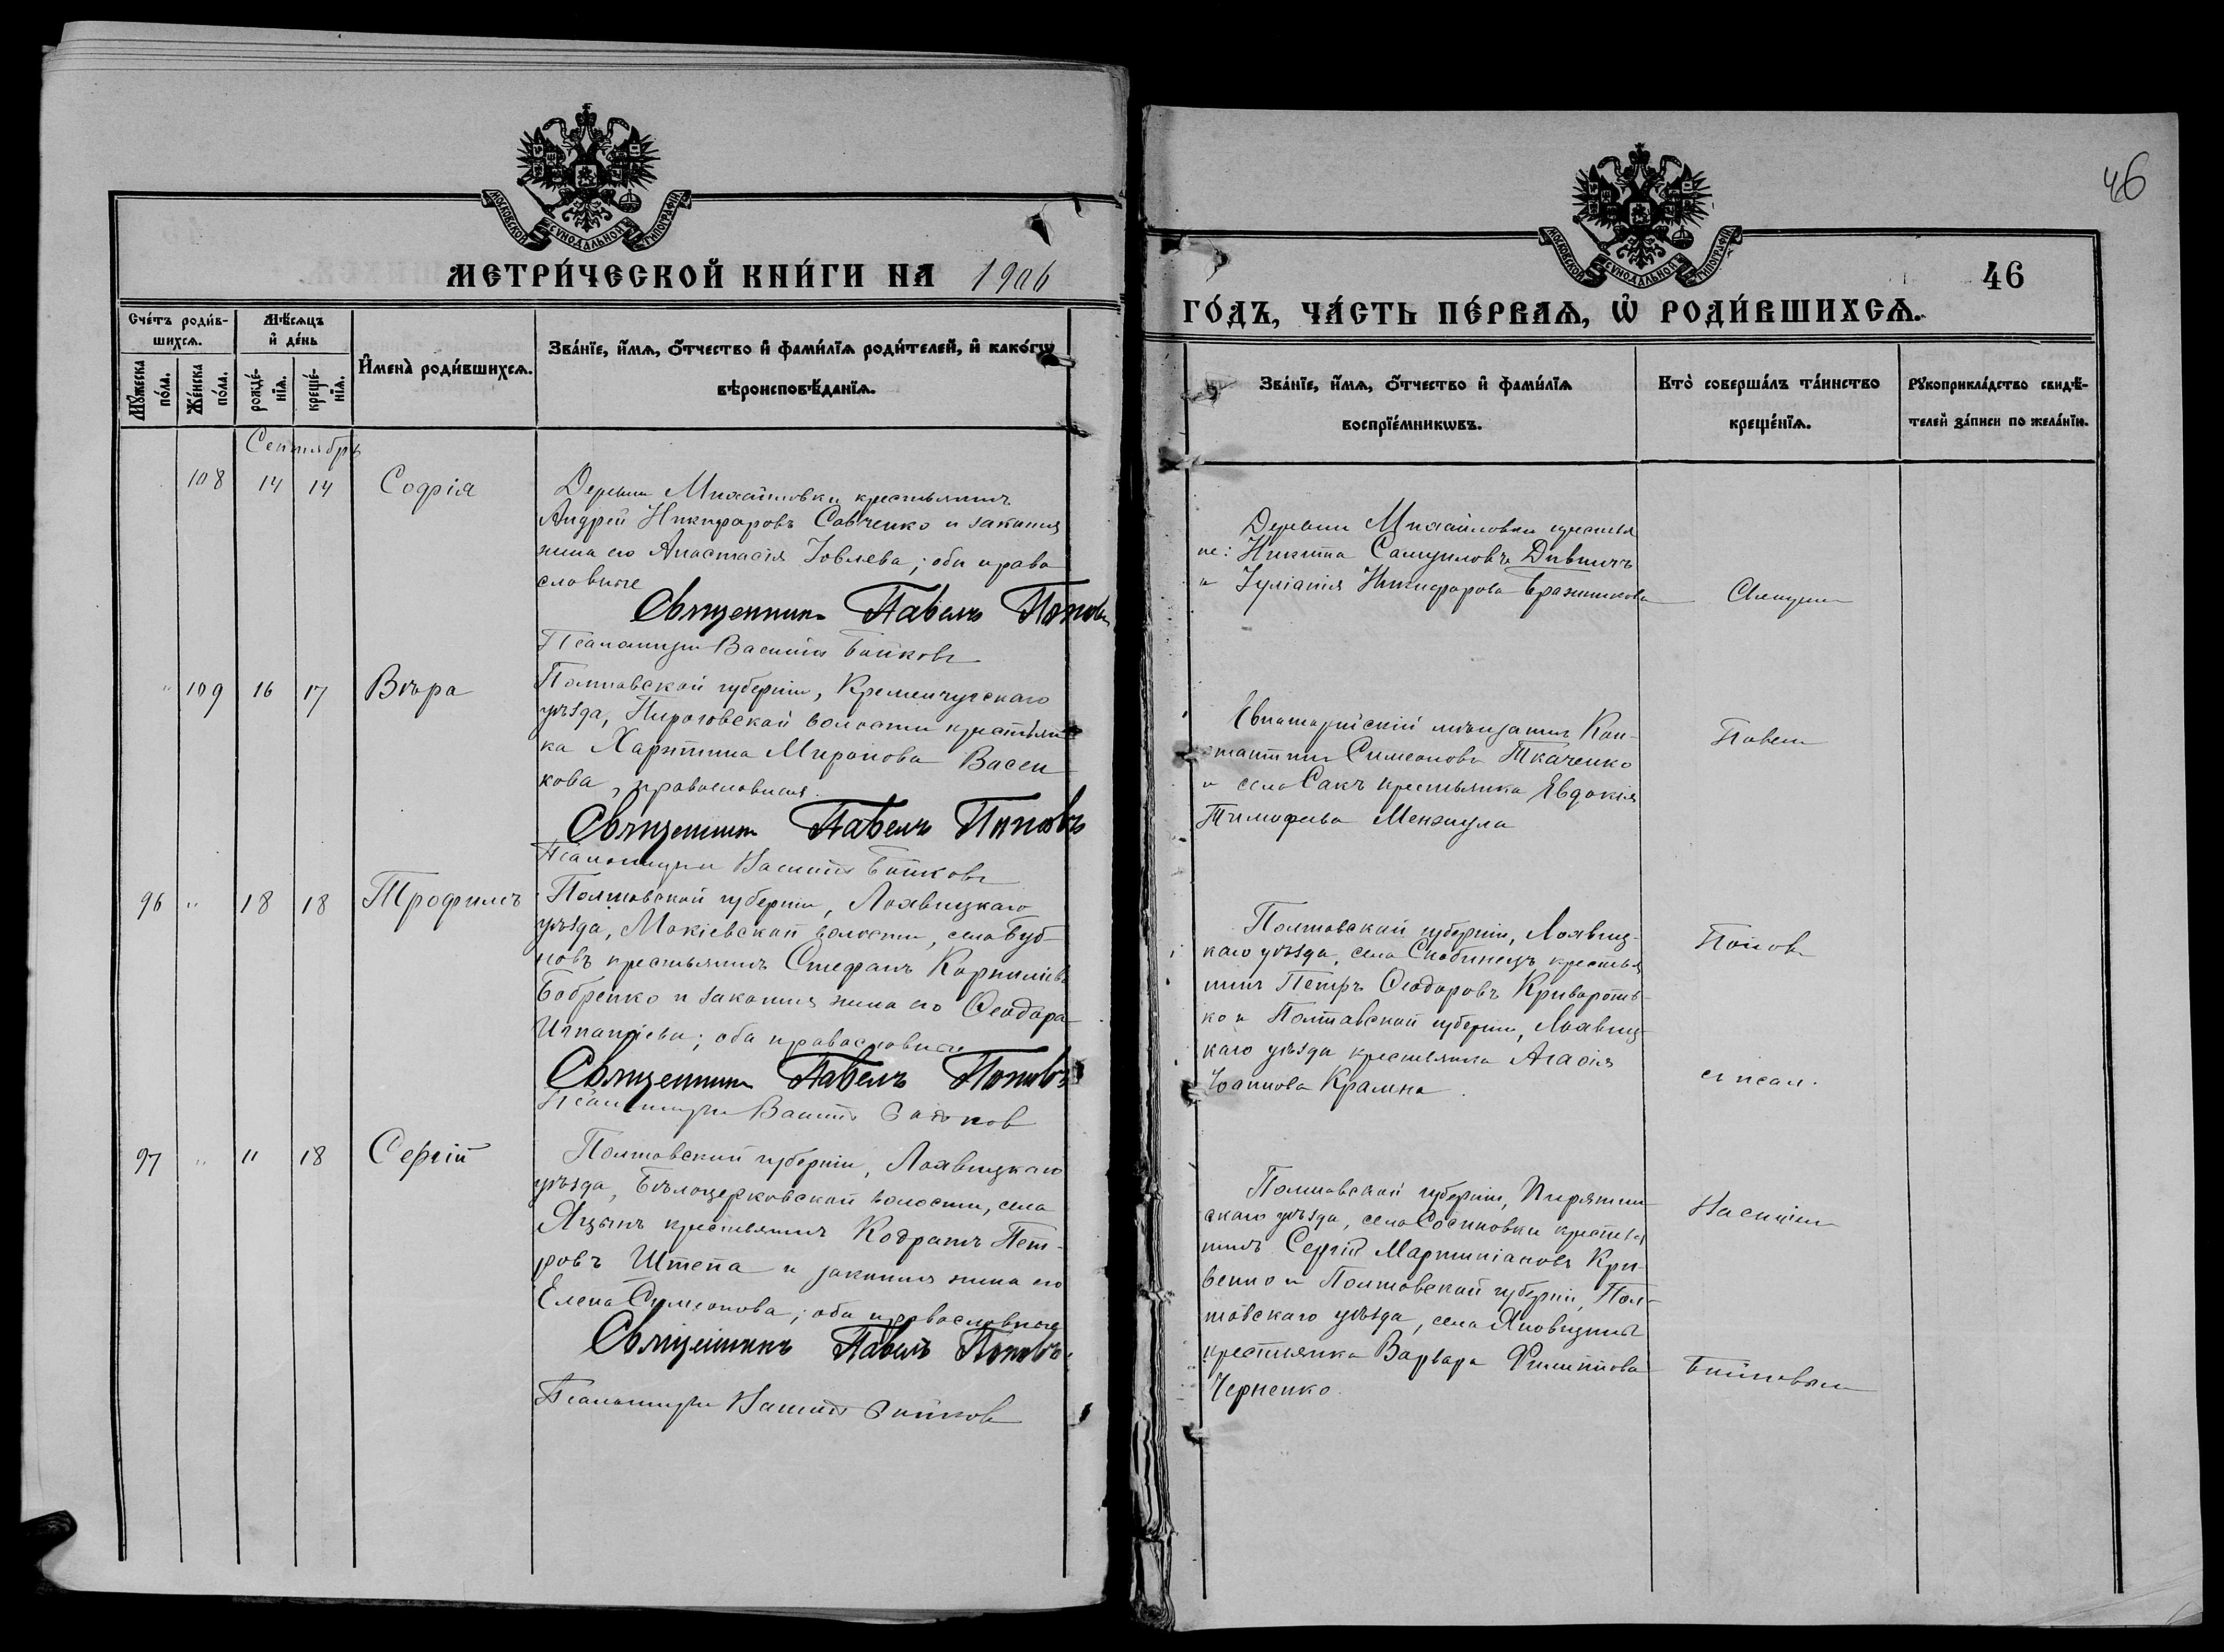 МОСКОВСКОЙ СУНОДАЛЬНОЙ ТИПОГРАФІИ
МЕТРИ́ЧЕСКОЙ КНИ́ГИ НА 1906
Сче́тъ роди́в-
шихсѧ.
Мѣ́сѧцъ
и҆ де́нь
Мꙋ́жеска
по́ла.
Же́нска
по́ла.
рожде́-
нїѧ.
креще́-
нїѧ.
И҆мена̀ роди́вшихсѧ.
Зва́нїе, и҆́мѧ, ѻ҆́тчество и҆ фами́лїѧ роди́телей, и҆ како́гѡ
вѣроисповѣ́данїѧ.
Сентябрь
108 14 14 Софія
Деревни Михайловки крестьянинъ
Андрей Никифоровъ Савченко и законная
жена его Анастасія Іовлева; оба право
славные
Священникъ Павелъ Поповъ
Псаломщикъ Василій Бойковъ
" 109 16 17 Вѣра
Полтавской губерніи, Кременчугскаго
уѣзда, Пироговской волости крестьян
ка Харитина Миронова Васен
кова, православная.
Священникъ Павелъ Поповъ
Псаломщикъ Василій Бойковъ
96 " 18 18 Трофимъ
Полтавской губерніи, Лохвицкаго
уѣзда, Мокіевской волости, села Буб-
новъ крестьянинъ Стефанъ Корниліевъ
Бобренко и законная жена его Ѳеодора
Игнатіева; оба православные
Священникъ Павелъ Поповъ
Псаломщикъ Василій Бойков
97 " 11 18 Сергій
Полтавской губерніи, Лохвицкаго
уѣзда, Бѣлоцерковской волости, села
Яцынъ крестьянинъ Кодратъ Пет-
ровъ Штепа и законная жена его
Елена Симеонова; оба православные
Священникъ Павелъ Поповъ
Псаломщикъ Василій Бойков
46
МОСКОВСКОЙ СУНОДАЛЬНОЙ ТИПОГРАФІИ
46
ГО́ДЪ, ЧА́СТЬ ПЕ́РВАѦ, Ѡ҆ РОДИ́ВШИХСѦ.
Зва́нїе, и҆́мѧ, ѻ҆́тчество и҆ фами́лїѧ
воспрїе́мникѡвъ.
Кто̀ соверша́лъ та́инство
креще́нїѧ.
Рꙋкоприкла́дство свидѣ́-
телей за́писи по жела́нїю.
Деревни Михайловки крестья
не: Никита Самуиловъ Дивничъ
и Іуліанія Никифорова Бражникова
Священ
Евпаторійскій мѣщанинъ Кон-
стантинъ Симеоновъ Ткаченко
и села Сакъ крестьянка Евдокія
Тимофеева Менжула
Павелъ
Полтавской губерніи, Лохвиц-
каго уѣзда, села крестья
нинъ Петръ Ѳеодоровъ Криворотъ-
ко и Полтавской губерніи, Лохвиц-
каго уѣзда крестьянка Агафія
Іоаннова Крамна.
Поповъ
съ псал.
Полтавской губерніи, Пирятин
скаго уѣзда, села Сосиновки крестья
нинъ Сергій Мартиніановъ Кри-
венко и Полтавской губерніи, Пол-
тавскаго уѣзда, села
крестьянка Варвара Филиппова
Черненко.
Василіем
Бойковым